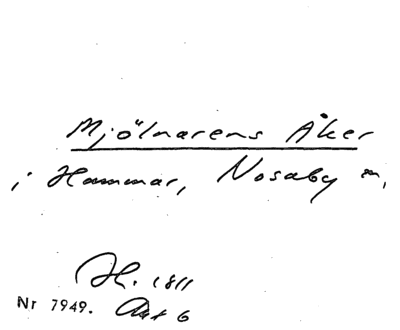 Mjölnarens Åker
i Hammar, Nosaby sn,
H. 1811
Nr 7949. Akt 6